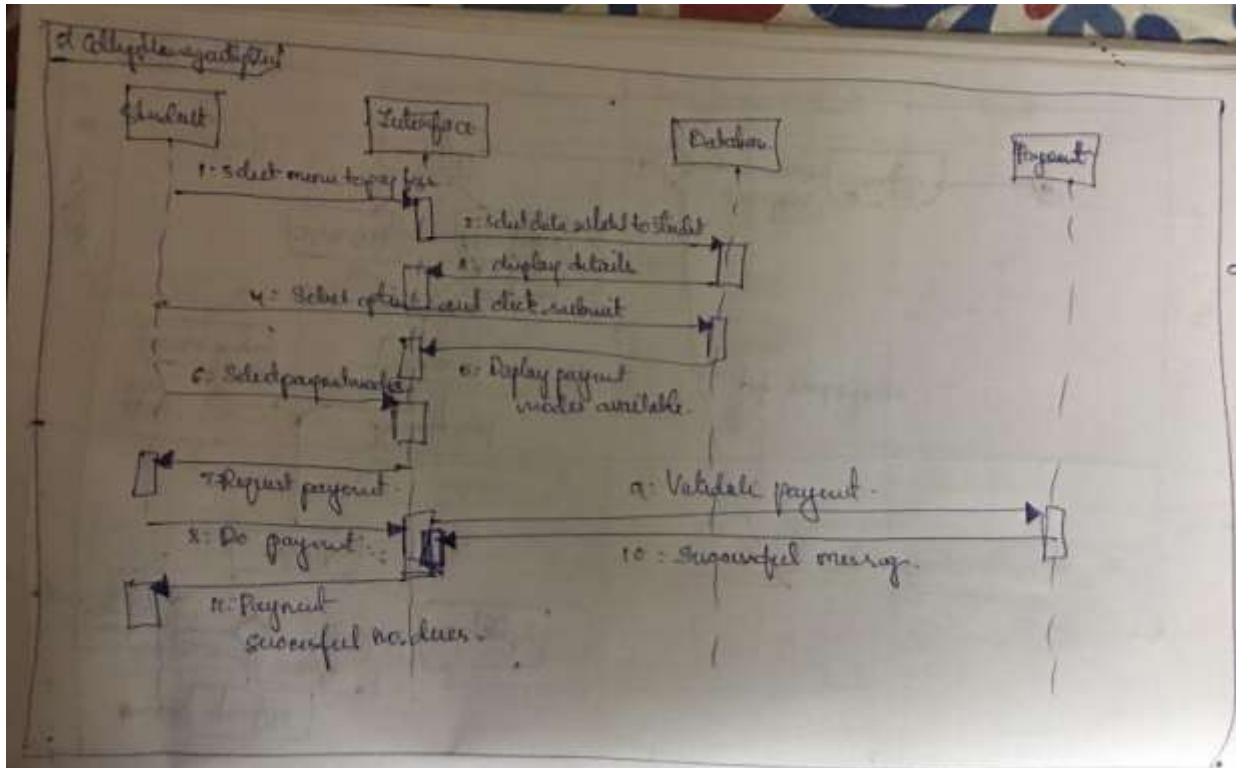 sd
Student
Interface
Database
Payment
1: Select menu to pay fees
2: Select data related to student
3: display details
4: Select option and click submit
5: Display payment
modes available.
6: Select payment modes
7: Request payment.
8: Do payment.
9: Validate payment.
10: Successful message.
11: Payment
successful no dues.